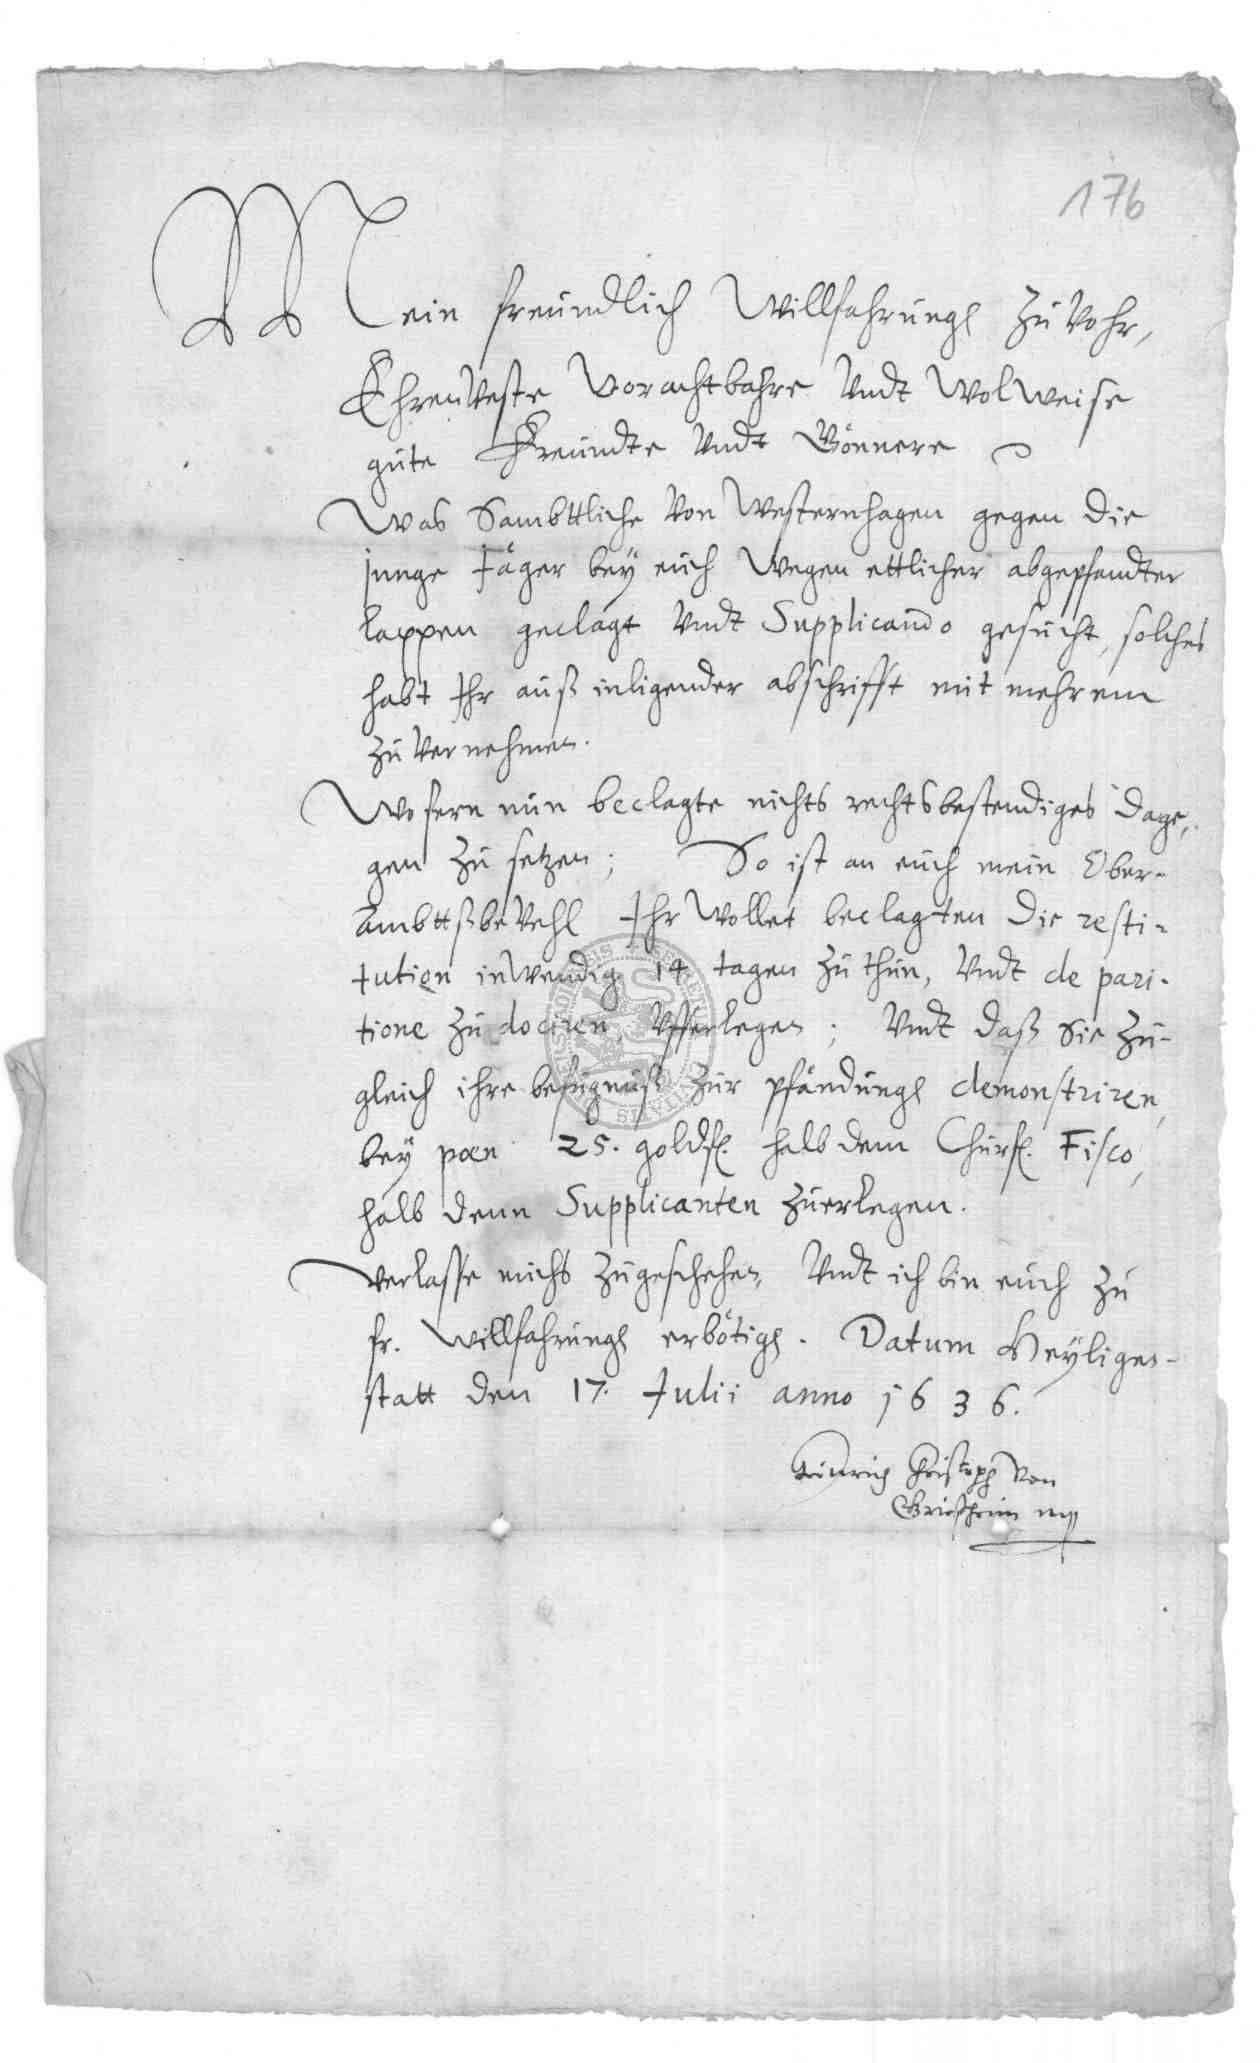 176
Mein freundlich Willfahrung zuvohr,
Ehrenveste Vorachtbahre Undt Wolweise
gute Freundte Undt Gönnere
Was Sambttliche Von Westernhagen gegen die
junge Jäger bey euch Wegen ettlicher abgepfandter
lappen geclagt Undt Supplicando gesucht, solches
habt Ihr auß inligender abschrifft mit mehrem
zuvernehmen.
Wofern nun beclagte nichts rechtsbestendiges dage,
gen zu setzen; So ist an euch mein Ober-
AmbttßbeVehl Ihr Wollet beclagten die resti-
tution inwendig 14 tagen zu thun, Undt de pari-
tione zu dociren, Ufferlegen; Undt daß Sie zu-
gleich ihre befugnuß zur pfändung demonstriren,
bey poen 25. goldfl. halb dem Churf. Fisco,
halb denn Supplicanten zuerlegen.
Verlasse michs zugeschehen, Undt ich bin euch zu
fr. Willfahrung erbötig. Datum Heyligen-
statt den 17. Julii anno 1636.
Heinrich Christoph Von
Grießheim mp